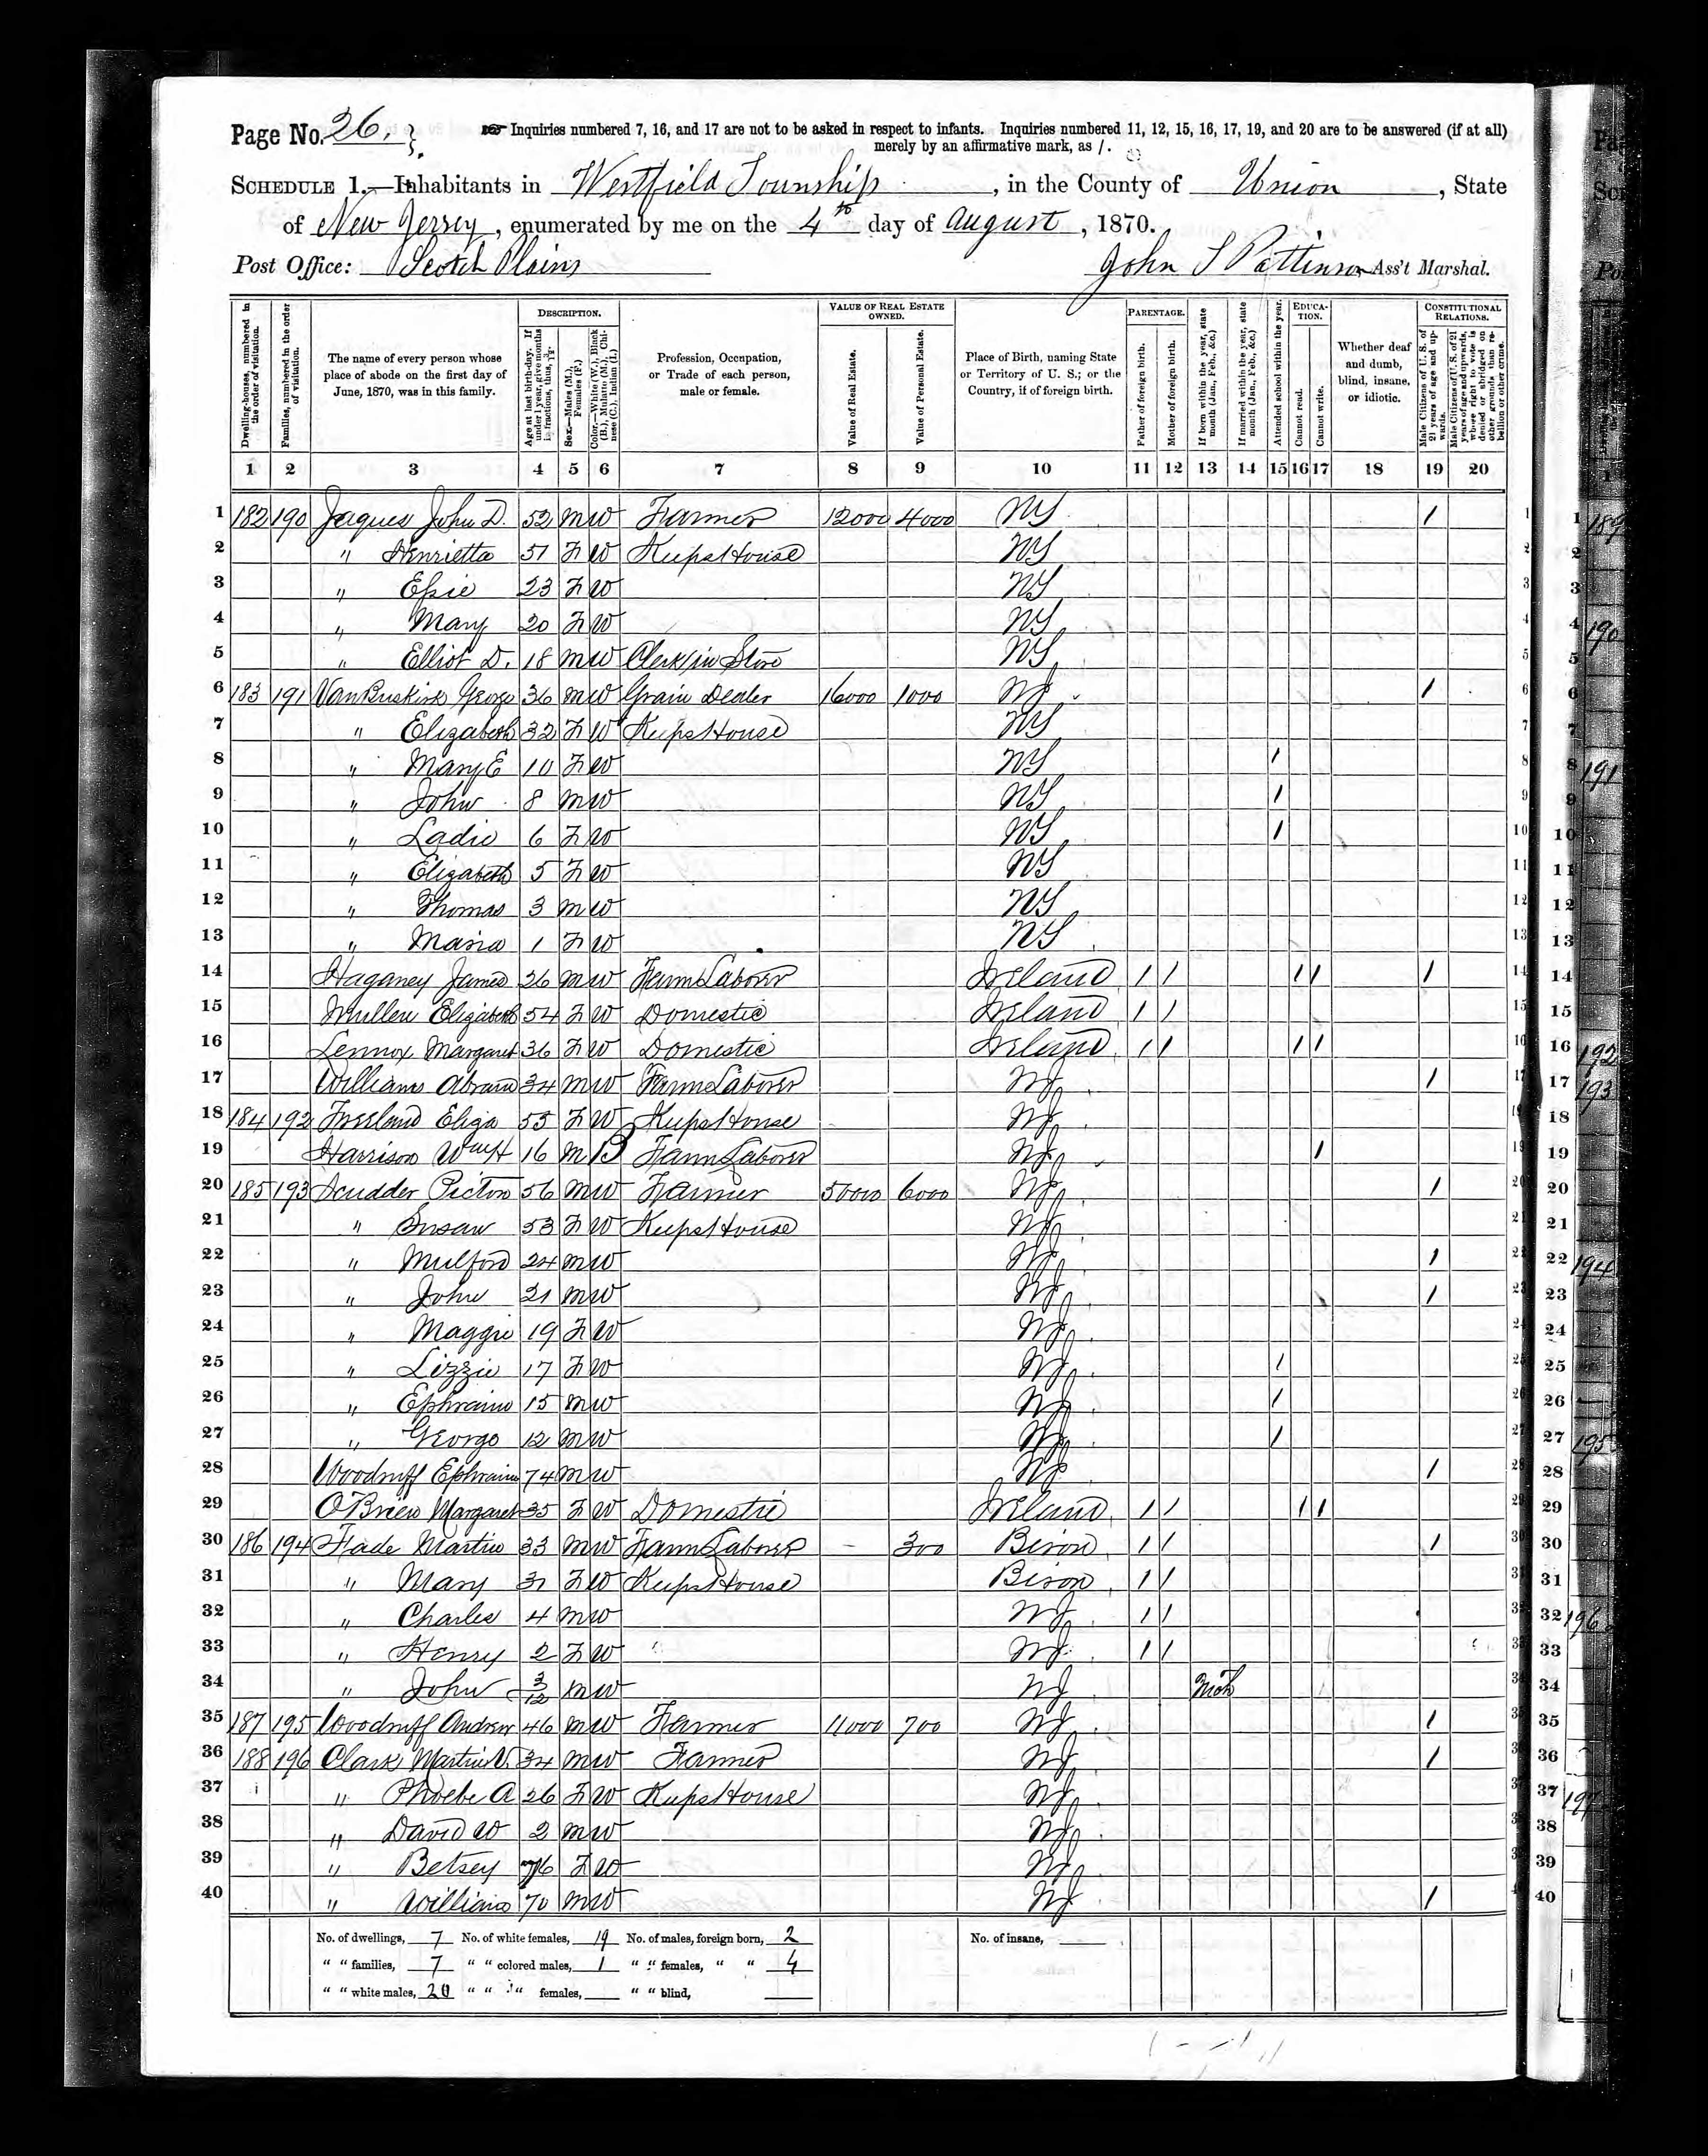 Page No. 26.
Inquiries numbered 7, 16, and 17 are not to be asked in respect to infants. Inquiries numbered 11, 12, 15, 16, 17, 19, and 20 are to be answered (if at all)
merely by an affirmative mark, as /.
SCHEDULE 1.—Inhabitants in Westfield Township, in the County of Union, State
of New Jersey, enumerated by me on the 4th day of August, 1870.
Post Office: Scotch Plains John S Pattinson Ass't Marshal.
Dwelling-houses, numbered in the order of visitation.
Families, numbered in the order of visitation.
The name of every person whose place of abode on the first day of June, 1870, was in this family.
DESCRIPTION.
Age at last birth-day. If under 1 year, give months in fractions, thus, 3/12.
Sex.—Males (M.), Females (F.)
Color.—White (W.), Black (B.), Mulatto (M.), Chinese (C.), Indian (I.)
Profession, Occupation, or Trade of each person, male or female.
VALUE OF REAL ESTATE OWNED.
Value of Real Estate.
Value of Personal Estate.
Place of Birth, naming State or Territory of U. S.; or the Country, if of foreign birth.
PARENTAGE.
Father of foreign birth.
Mother of foreign birth.
If born within the year, state month (Jan., Feb., &c.)
If married within the year, state month (Jan., Feb., &c.)
Attended school within the year.
EDUCATION.
Cannot read.
Cannot write.
Whether deaf and dumb, blind, insane, or idiotic.
CONSTITUTIONAL RELATIONS.
Male Citizens of U. S. of 21 years of age and upwards.
Male Citizens of U. S. of 21 years of age and upwards, where right to vote is denied or abridged on other grounds than rebellion or other crime.
1 2 3 4 5 6 7 8 9 10 11 12 13 14 15 16 17 18 19 20
1 182 190 Jaques John D. 52 M W Farmer 12000 4000 NY / 1
2 " Henrietta 51 F W Keeps House NY 2
3 " Epie 23 F W NY 3
4 " Mary 20 F W NY 4
5 " Elliot D. 18 M W Clerk in Store NY 5
6 183 191 VanBuskirk George 36 M W Grain Dealer 16000 1000 NJ / 6
7 " Elizabeth 32 F W Keeps House NY 7
8 " Mary E 10 F W NY / 8
9 " John 8 M W NY / 9
10 " Ladie 6 F W NY / 10
11 " Elizabeth 5 F W NY 11
12 " Thomas 3 M W NY 12
13 " Maria 1 F W NY 13
14 Haganey James 26 M W Farm Laborer Ireland / / / / / 14
15 Mullen Elizabeth 54 F W Domestic Ireland / / 15
16 Lennox Margaret 36 F W Domestic Ireland / / / / 16
17 Williams Abram 34 M W Farm Laborer NJ / 17
18 184 192 Freeland Eliza 55 F W Keeps House NJ
19 Harrison Wm H 16 M B Farm Laborer NJ /
20 185 193 Scudder Picton 56 M W Farmer 50000 6000 NJ /
21 " Susan 53 F W Keeps House NJ
22 " Mulford 24 M W NJ /
23 " John 21 M W NJ /
24 " Maggie 19 F W NJ
25 " Lizzie 17 F W NJ /
26 " Ephraim 15 M W NJ /
27 " George 12 M W NJ /
28 Woodruff Ephraim 74 M W NJ /
29 O'Brien Margaret 35 F W Domestic Ireland / / / /
30 186 194 Fade Martin 33 M W Farm Laborer - 300 / / /
31 " Mary 31 F W Keeps House / /
32 " Charles 4 M W NJ / /
33 " Henry 2 F W NJ / /
34 " John 3/12 M W NJ
35 187 195 Woodruff Andrew 46 M W Farmer 11000 700 NJ /
36 188 196 Clark Martin V. 34 M W Farmer NJ /
37 " Phoebe A 26 F W Keeps House NJ
38 " David W 2 M W NJ
39 " Betsey 76 F W NJ
40 " William 70 M W NJ /
No. of dwellings, 7 No. of white females, 19 No. of males, foreign born, 2 No. of insane,
" " families, 7 " " colored males, 1 " " females, " " 4
" " white males, 20 " " " females, " " blind,